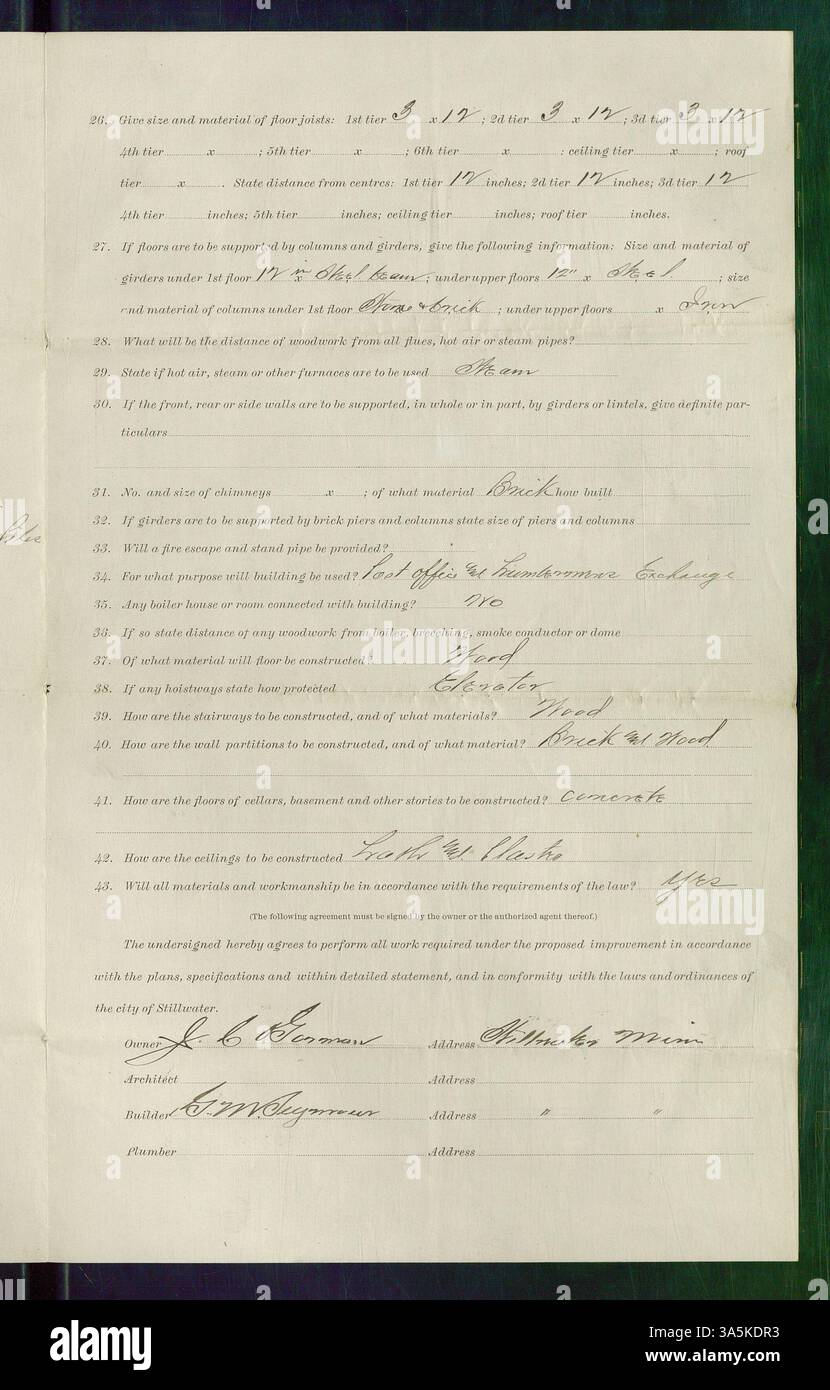 26. Give size and material of floor joists: 1st tier 3 x 12 ; 2d tier 3 x 12 ; 3d tier 3 x 12
4th tier x ; 5th tier x ; 6th tier x : ceiling tier x ; roof
tier x . State distance from centres: 1st tier 12 inches; 2d tier 12 inches; 3d tier 12
4th tier inches; 5th tier inches; ceiling tier inches; roof tier inches.
27. If floors are to be supported by columns and girders, give the following information: Size and material of
girders under 1st floor 12 in x Steel beam ; under upper floors 12" x Steel ; size
and material of columns under 1st floor Stone & brick ; under upper floors x Iron
28. What will be the distance of woodwork from all flues, hot air or steam pipes?
29. State if hot air, steam or other furnaces are to be used Steam
30. If the front, rear or side walls are to be supported, in whole or in part, by girders or lintels, give definite par-
ticulars
31. No. and size of chimneys x ; of what material Brick how built
32. If girders are to be supported by brick piers and columns state size of piers and columns
33. Will a fire escape and stand pipe be provided?
34. For what purpose will building be used? Post office and Lumbermans Exchange
35. Any boiler house or room connected with building? No
36. If so state distance of any woodwork from boiler, breeching, smoke conductor or dome
37. Of what material will floor be constructed? Wood
38. If any hoistways state how protected Elevator
39. How are the stairways to be constructed, and of what materials? Wood
40. How are the wall partitions to be constructed, and of what material? Brick and Wood
41. How are the floors of cellars, basement and other stories to be constructed? concrete
42. How are the ceilings to be constructed Lath and Plaster
43. Will all materials and workmanship be in accordance with the requirements of the law? Yes
(The following agreement must be signed by the owner or the authorized agent thereof.)
The undersigned hereby agrees to perform all work required under the proposed improvement in accordance
with the plans, specifications and within detailed statement, and in conformity with the laws and ordinances of
the city of Stillwater.
Owner J. C. Gorman Address Stillwater Minn
Architect Address
Builder G. M. Seymour Address " "
Plumber Address
alamy
Image ID: 3A5KDR3
www.alamy.com